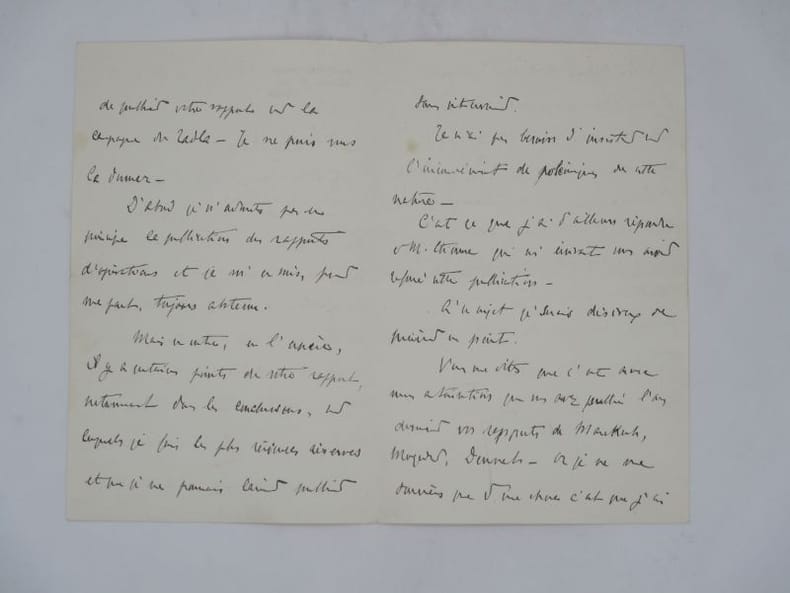 de publier votre rapport sur la
campagne du Tadla — Je ne puis vous
la donner —
D'abord je n'admets pas en
principe la publication des rapports
d'opérations et je m'en suis, pour
ma part, toujours abstenu.
Mais en outre, en l'espèce,
il y a certains points de votre rapport,
notamment dans les conclusions, sur
lesquels je fais les plus sérieuses réserves
et que je ne pourrais laisser publier
sans intervenir.
Je n'ai pas besoin d'insister sur
l'inconvénient de polémiques de cette
nature —
C'est ce que j'ai d'ailleurs répondre
à M. qui m'écrivait vous avoir
cette publication —
A ce sujet je serais désireux de
préciser un point.
Vous me dites que c'est avec
mon autorisation que vous avez publié l'an
dernier vos rapports de Marrakech,
Mogador, — Or je ne me
souviens que d'une chose c'est que j'ai